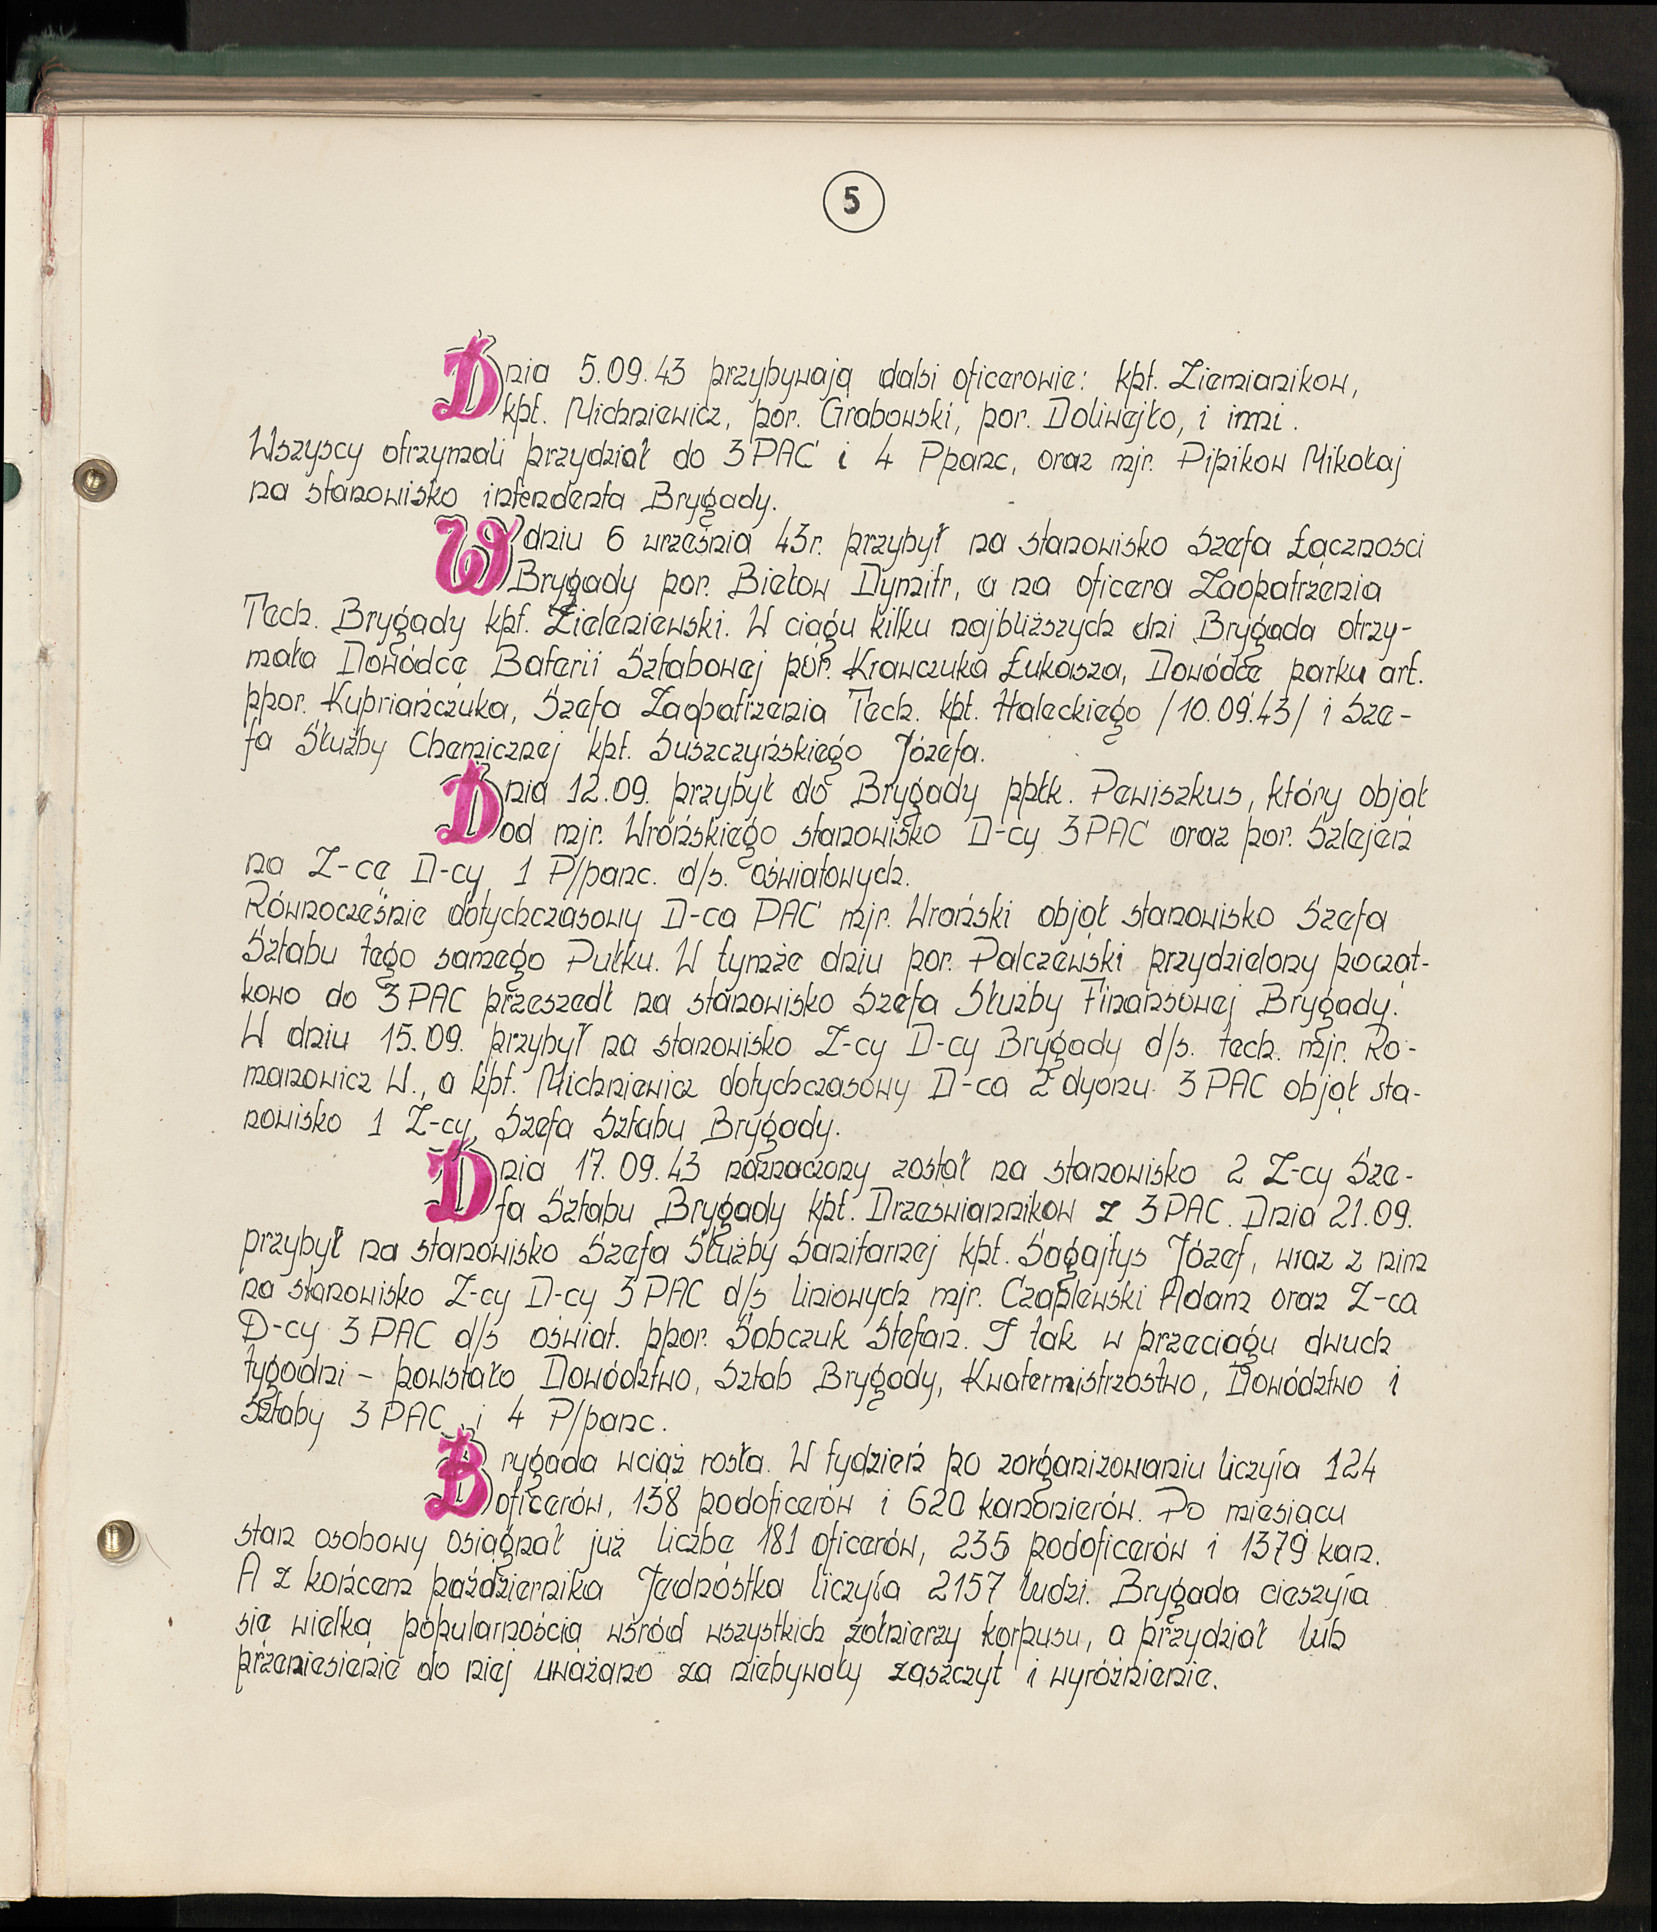 5
Dnia 5.09.43 przybywają dalsi oficerowie: kpt. Ziemianikow,
kpt. Michniewicz, por. Grabowski, por. Doliwejło, i inni.
Wszyscy otrzymali przydział do 3 PAC i 4 Ppanc, oraz mjr. Pipikow Mikołaj
na stanowisko intendenta Brygady.
W dniu 6 września 43r. przybył na stanowisko Szefa Łączności
Brygady por. Biełow Dymitr, a na oficera Zaopatrzenia
Tech. Brygady kpt. Zieleniewski. W ciągu kilku najbliższych dni Brygada otrzy-
mała Dowódcę Baterii Sztabowej por. Krawczuka Łukasza, Dowódcę parku art.
ppor. Kupriańczuka, Szefa Zaopatrzenia Tech. kpt. Haleckiego /10.09.43/ i Sze-
fa Służby Chemicznej kpt. Suszczyńskiego Józefa.
Dnia 12.09. przybył do Brygady ppłk. Pewiszkus, który objął
od mjr. Wrońskiego stanowisko D-cy 3 PAC oraz por. Szlejen
na Z-cę D-cy 1 P/panc. d/s. oświatowych.
Równocześnie dotychczasowy D-ca PAC mjr. Wroński objął stanowisko Szefa
Sztabu tego samego Pułku. W tymże dniu por. Palczewski przydzielony począt-
kowo do 3 PAC przeszedł na stanowisko Szefa Służby Finansowej Brygady.
W dniu 15.09. przybył na stanowisko Z-cy D-cy Brygady d/s. tech. mjr. Ro-
manowicz W., a kpt. Michniewicz dotychczasowy D-ca 2 dyonu 3 PAC objął sta-
nowisko 1 Z-cy Szefa Sztabu Brygady.
Dnia 17.09.43 naznaczony został na stanowisko 2 Z-cy Sze-
fa Sztabu Brygady kpt. Drzeswiannikow z 3 PAC. Dnia 21.09.
przybył na stanowisko Szefa Służby Sanitarnej kpt. Sagajtys Józef, wraz z nim
na stanowisko Z-cy D-cy 3 PAC d/s liniowych mjr. Czaplewski Adam oraz Z-ca
D-cy 3 PAC d/s oświat. ppor. Sobczuk Stefan. I tak w przeciągu dwuch
tygodni - powstało Dowództwo, Sztab Brygady, Kwatermistrzostwo, Dowództwo i
Sztaby 3 PAC i 4 P/panc.
Brygada wciąż rosła. W tydzień po zorganizowaniu liczyła 124
oficerów, 138 podoficerów i 620 kanonierów. Po miesiącu
stan osobowy osiągnął już liczbę 181 oficerów, 235 podoficerów i 1379 kan.
A z końcem października Jednostka liczyła 2157 ludzi. Brygada cieszyła
się wielką popularnością wśród wszystkich żołnierzy korpusu, a przydział lub
przeniesienie do niej uważano za niebywały zaszczyt i wyróżnienie.